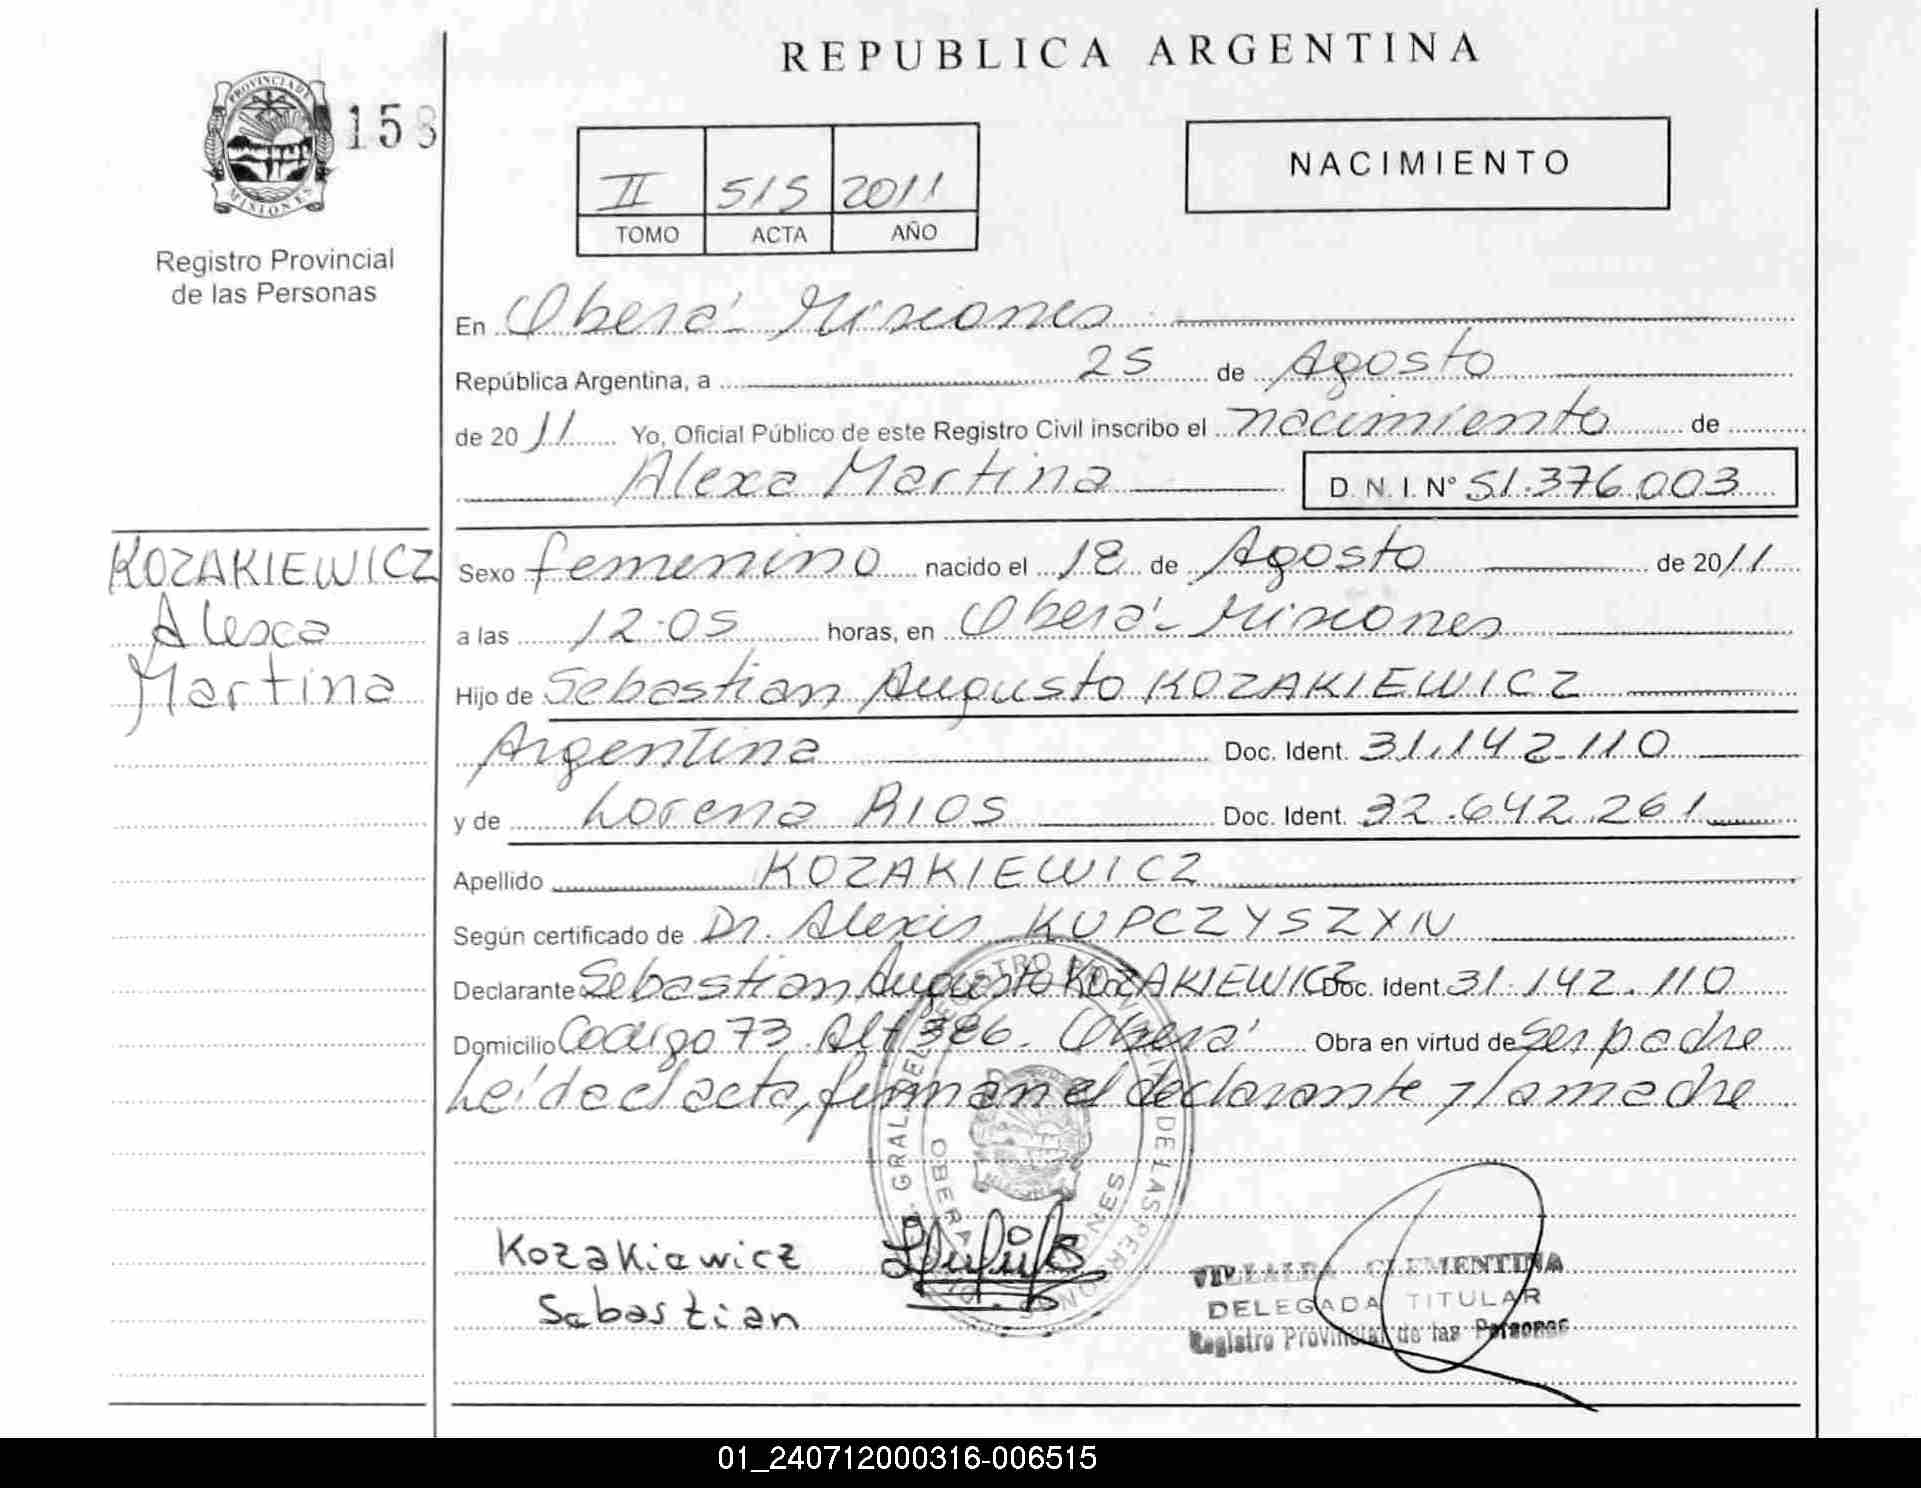 REPUBLICA ARGENTINA
PROVINCIA DE
MISIONES
158
Registro Provincial
de las Personas
II 515 2011
TOMO ACTA AÑO
NACIMIENTO
En Oberá - Misiones
República Argentina, a 25 de Agosto
de 2011 Yo, Oficial Público de este Registro Civil inscribo el nacimiento de
Alexa Martina D. N. I. N° 51.376.003
KOZAKIEWICZ
Alexa
Martina
Sexo femenino nacido el 18 de Agosto de 2011
a las 12.05 horas, en Oberá - Misiones
Hijo de Sebastian Augusto KOZAKIEWICZ
Argentina Doc. Ident. 31.142.110
y de Lorena RIOS Doc. Ident. 32.642.261
Apellido KOZAKIEWICZ
Según certificado de Dr. Alexis KUPCZYSZXIN
Declarante Sebastian Augusto KOZAKIEWICZ Doc. Ident. 31.142.110
Domicilio Codigo 73 Alt 386. Oberá Obra en virtud de ser padre
Leída el acta, firman el declarante y la madre
Kozakiewicz
Sebastian
VILLALBA CLEMENTINA
DELEGADA TITULAR
Registro Provincial de las Personas
01_240712000316-006515